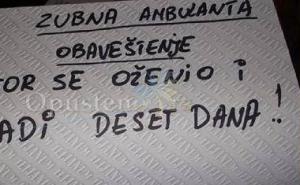 ZUBNA AMBULANTA
OBAVEŠTENJE
TOR SE OŽENIO I
RADI DESET DANA!!